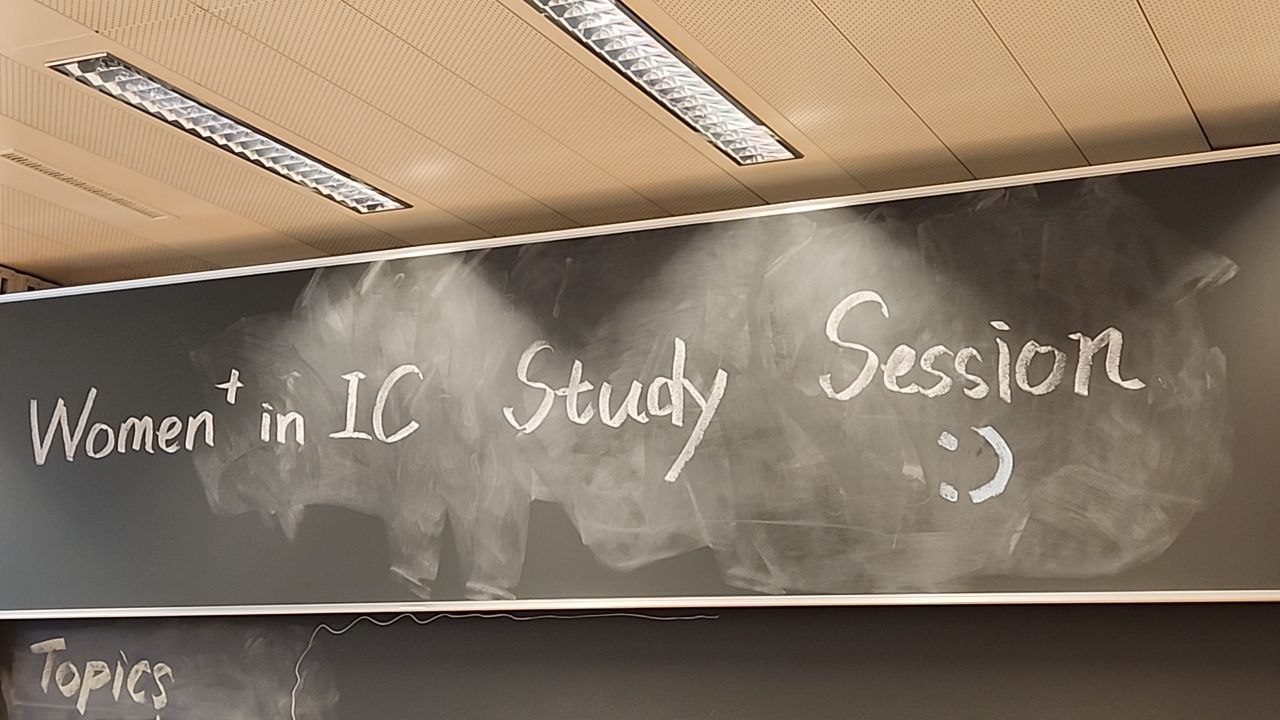 Women+ in IC Study Session
:)
Topics